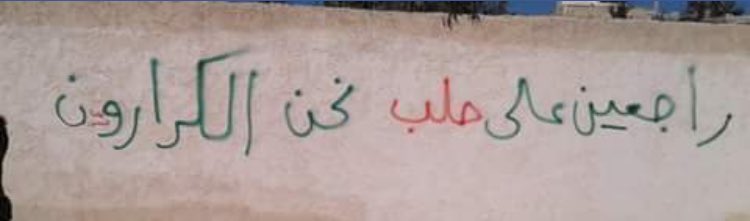 راجعين على حلب نحن الكرارون